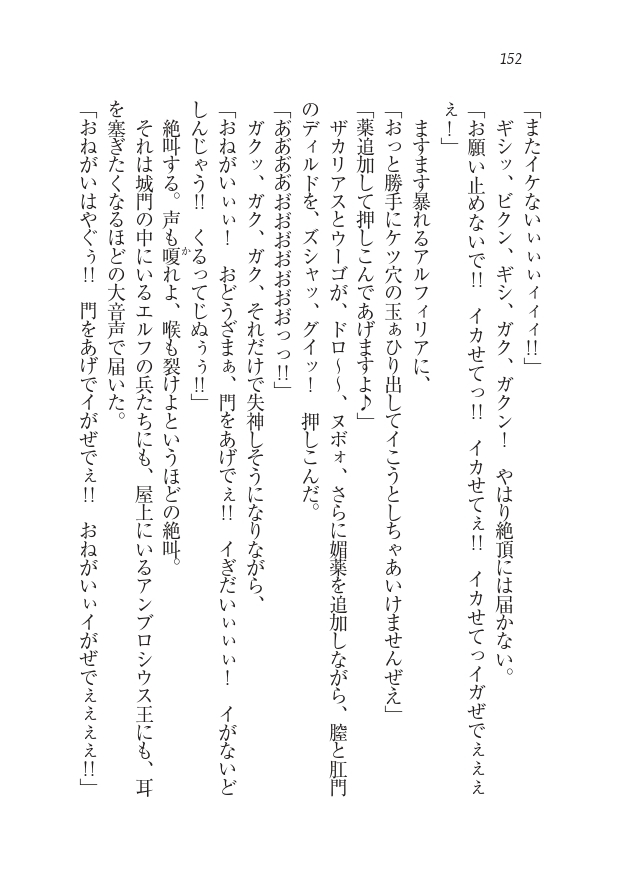 152
「またイケないぃぃぃィィィ!!」
ギシッ、ビクン、ギシ、ガク、ガクン！　やはり絶頂には届かない。
「お願い止めないで!!　イカせてっ!!　イカせてぇ!!　イカせてっイガぜでぇぇぇ
ぇ！」
ますます暴れるアルフィリアに、
「おっと勝手にケツ穴の玉ぁひり出してイこうとしちゃあいけませんぜえ」
「薬追加して押しこんであげますよ♪」
ザカリアスとウーゴが、ドロ～～、ヌボォ、さらに媚薬を追加しながら、膣と肛門
のディルドを、ズシャッ、グイッ！　押しこんだ。
「ああああおおおおおおおっっ!!」
ガクッ、ガク、ガク、それだけで失神しそうになりながら、
「おねがいぃぃ！　おどうざまぁ、門をあげでぇ!!　イぎだいぃぃぃ！　イがないど
しんじゃう!!　くるってじぬぅぅ!!」
絶叫する。声も嗄かれよ、喉も裂けよというほどの絶叫。
それは城門の中にいるエルフの兵たちにも、屋上にいるアンブロシウス王にも、耳
を塞ぎたくなるほどの大音声で届いた。
「おねがいはやぐぅ!!　門をあげでイがぜでぇ!!　おねがいぃイがぜでぇぇぇぇ!!」